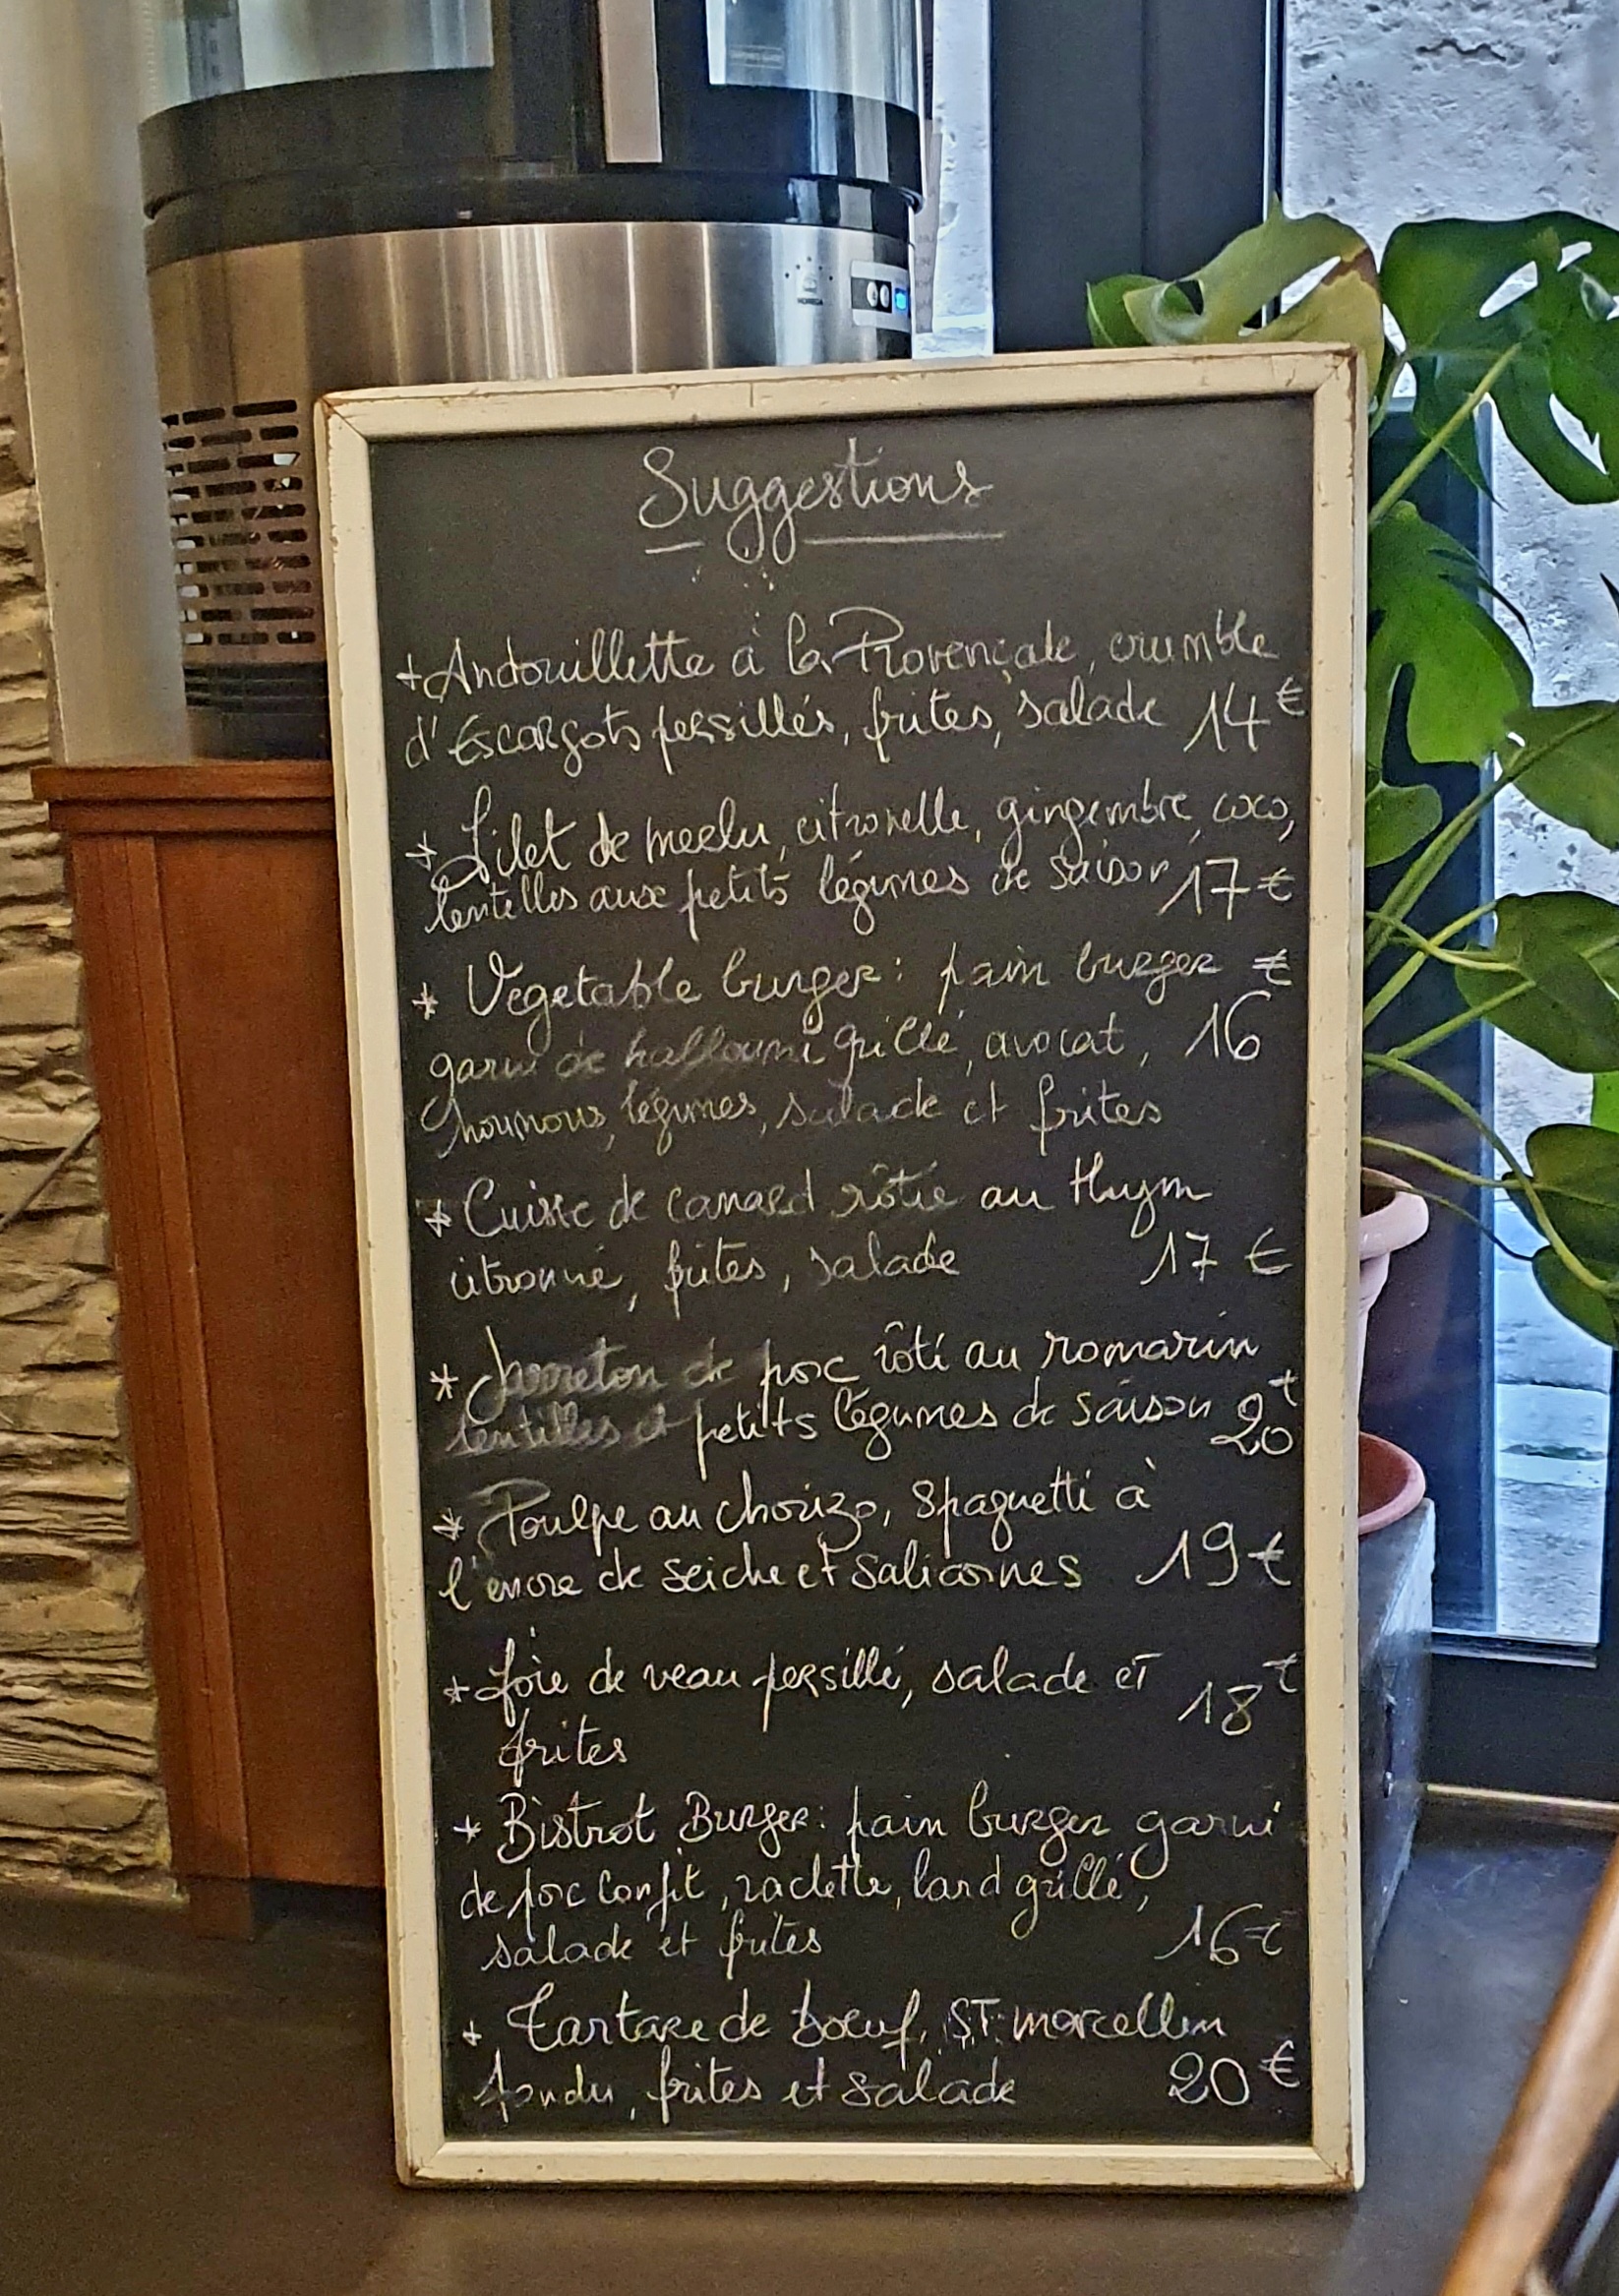 Suggestions
+ Andouillette à la Provençale, crumble
d'Escargots persillés, frites, salade 14€
* Filet de merlu, citronelle, gingembre, coco,
lentilles aux petits légumes de saison 17€
* Vegetable burger: pain burger €
garni de halloumi grillé, avocat, 16
houmous, légumes, salade et frites
* Cuisse de canard rôtie au thym
citronné, frites, salade 17 €
* Jarreton de porc rôti au romarin
lentilles et petits légumes de saison 20€
* Poulpe au chorizo, Spaguetti à
l'encre de seiche et salicornes 19€
* foie de veau persillé, salade et 18€
frites
* Bistrot Burger: pain burger garni
de porc confit, raclette, lard grillé,
salade et frites 16€
+ Tartare de boeuf, ST marcellin
fondu, frites et salade 20€